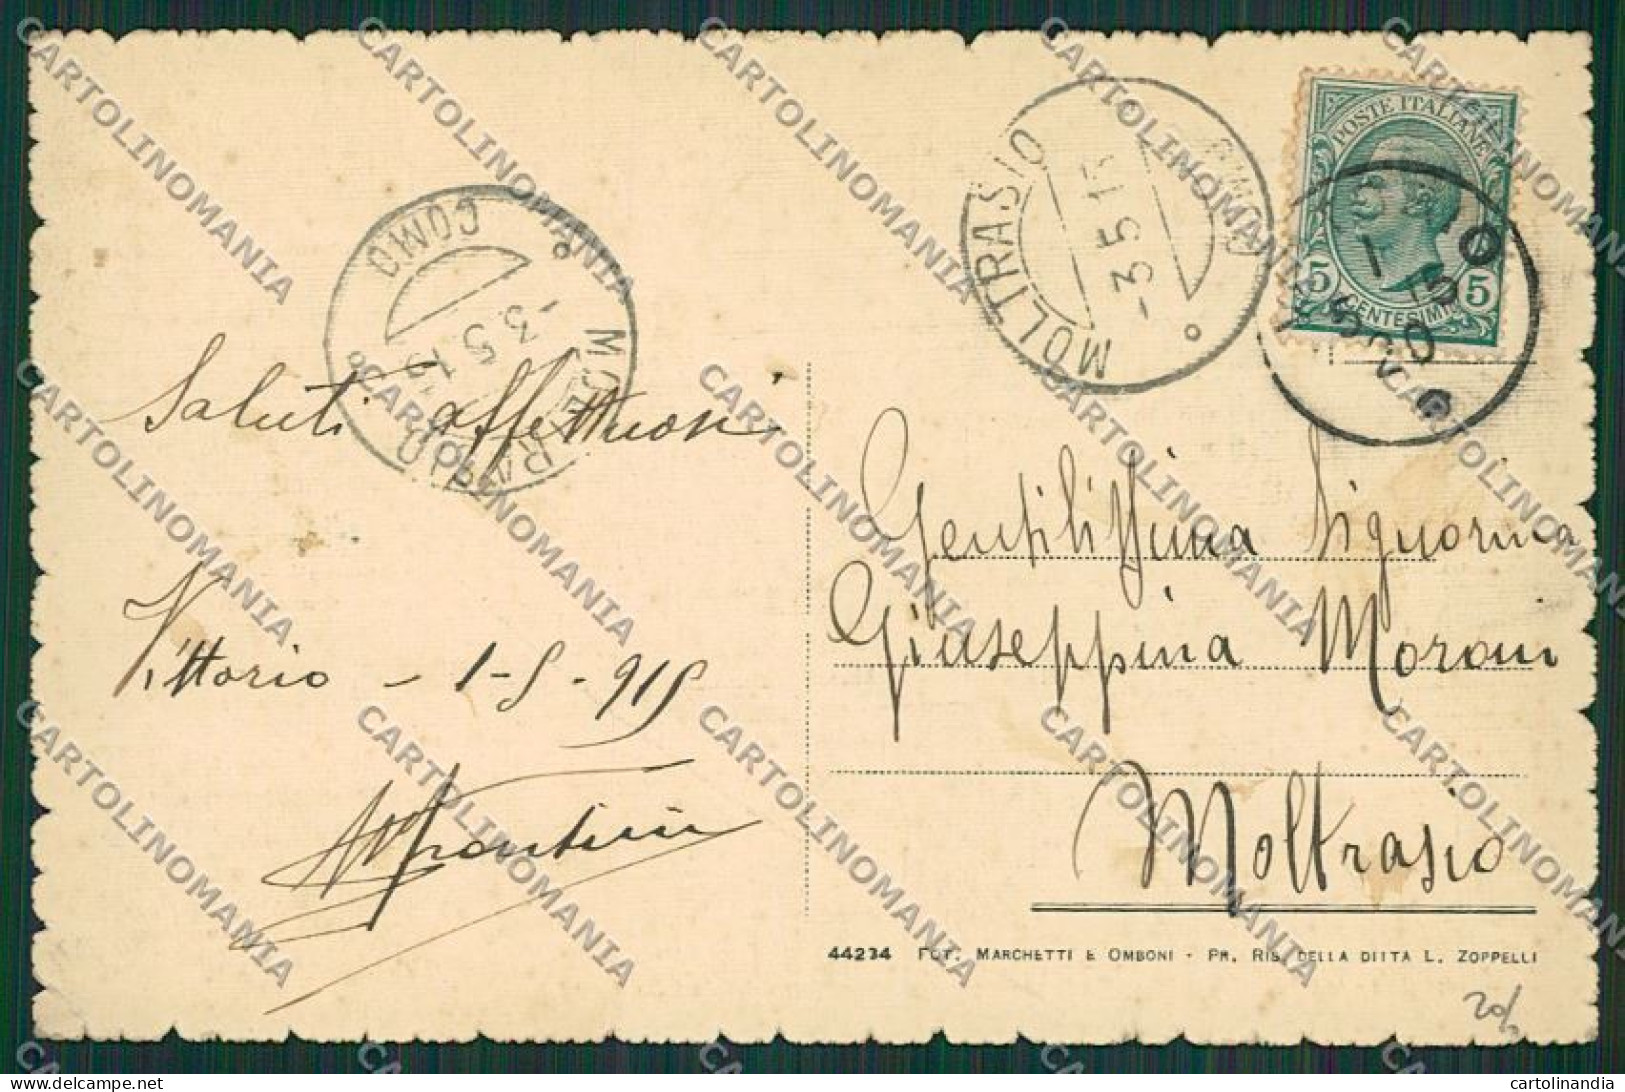 POSTE ITALIANE
5 CENTESIMI 5
MOLTRASIO
-3.5.15
COMO
MOLTRASIO
3.5.15
COMO
Saluti affettuosi
Vittorio - 1-5-915
Gentilissima Signorina
Giuseppina Moroni
Moltrasio
44234 FOT. MARCHETTI E OMBONI - PR. RIS. DELLA DITTA L. ZOPPELLI
CARTOLINOMANIA
cartolinandia